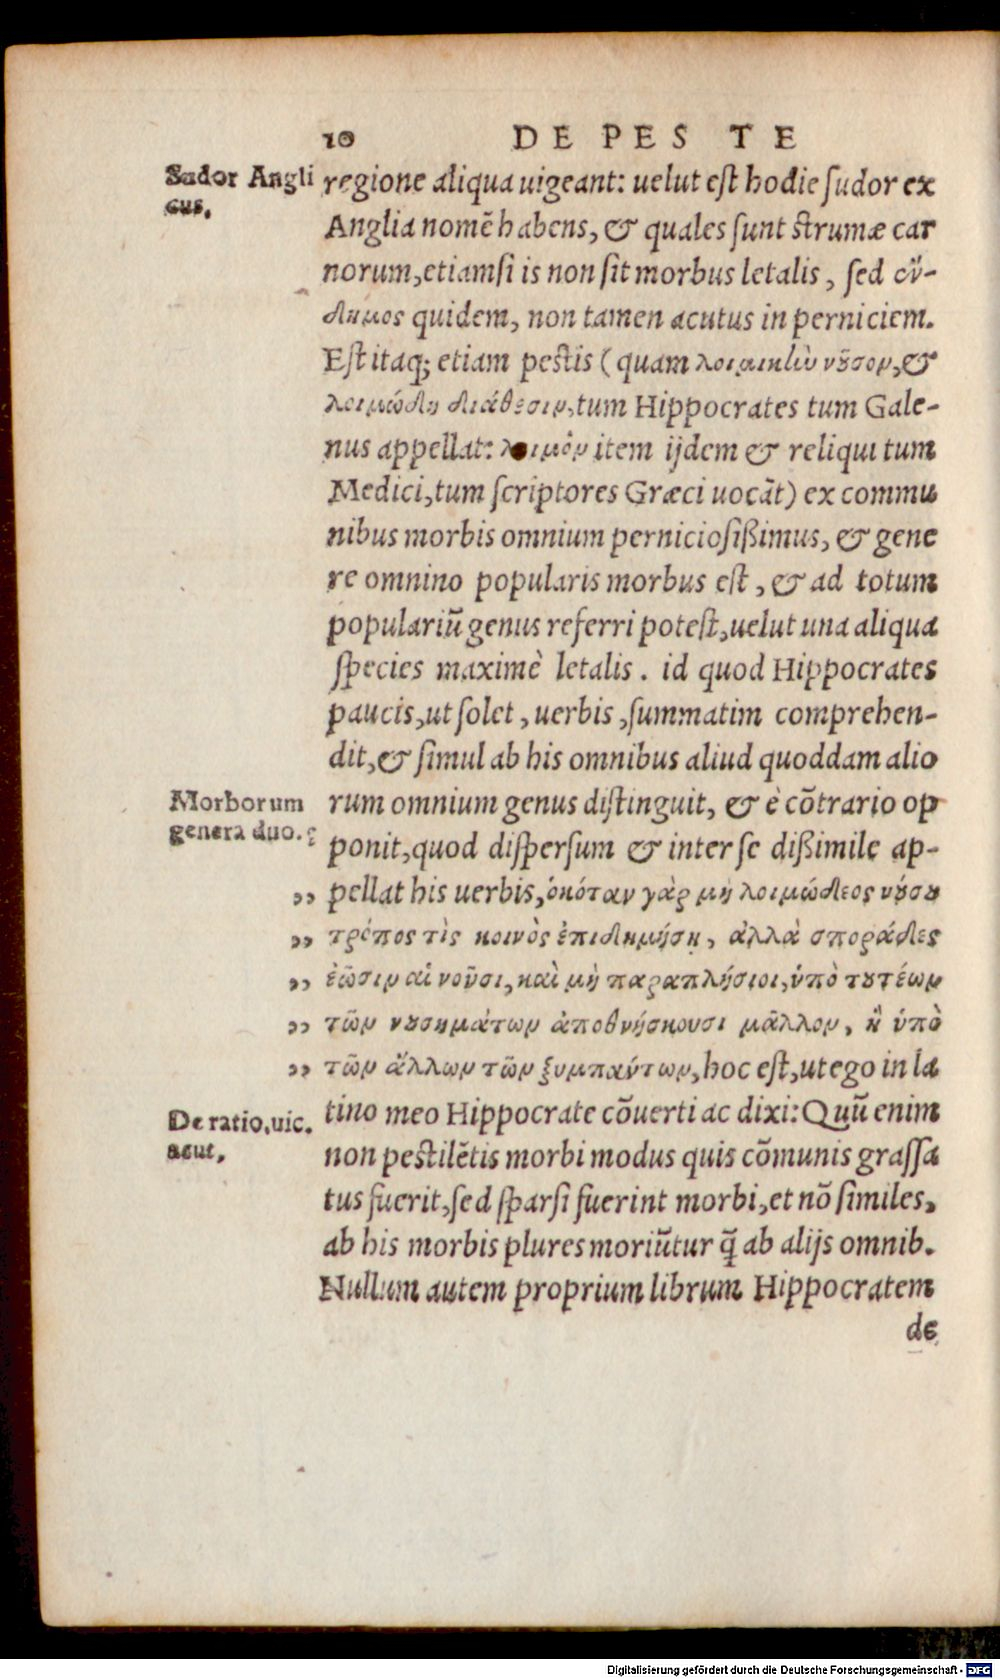 10 DE PES TE
Sudor Angli
cus.
regione aliqua uigeant: uelut est hodie sudor ex
Anglia nomẽ habens, & quales sunt strumæ car
norum, etiamsi is non sit morbus letalis, sed ἔν-
δημος quidem, non tamen acutus in perniciem.
Est itaq; etiam pestis (quam λοιμικὴν νȣ̃σον, &
λοιμώδη διάθεσιν, tum Hippocrates tum Gale-
nus appellat: λοιμὸν item ijdem & reliqui tum
Medici, tum scriptores Græci uocãt) ex commu
nibus morbis omnium perniciosißimus, & gene
re omnino popularis morbus est, & ad totum
populariũ genus referri potest, uelut una aliqua
species maximè letalis. id quod Hippocrates
paucis, ut solet, uerbis, summatim comprehen-
dit, & simul ab his omnibus aliud quoddam alio
Morborum
genera duo.
rum omnium genus distinguit, & è cõtrario op
ponit, quod dispersum & inter se dißimile ap-
,, pellat his uerbis, ὁκόταν γὰρ μὴ λοιμώδεος νȣ́σȣ
,, τρόπος τὶς κοινὸς ἐπιδημήσῃ, ἀλλὰ σποράδες
,, ἐῶσιν αἱ νοῦσι, καὶ μὴ παραπλήσιοι, ὑπὸ τȣτέων
,, τῶν νȣσημάτων ἀποθνήσκουσι μᾶλλον, ἢ ὑπὸ
,, τῶν ἄλλων τῶν ξυμπάντων, hoc est, ut ego in la
De ratio. uic.
acut.
tino meo Hippocrate cõuerti ac dixi: Quũ enim
non pestilẽtis morbi modus quis cõmunis grassa
tus fuerit, sed sparsi fuerint morbi, et nõ similes,
ab his morbis plures moriũtur q̃ ab alijs omnib.
Nullum autem proprium librum Hippocratem
de
Digitalisierung gefördert durch die Deutsche Forschungsgemeinschaft - DFG